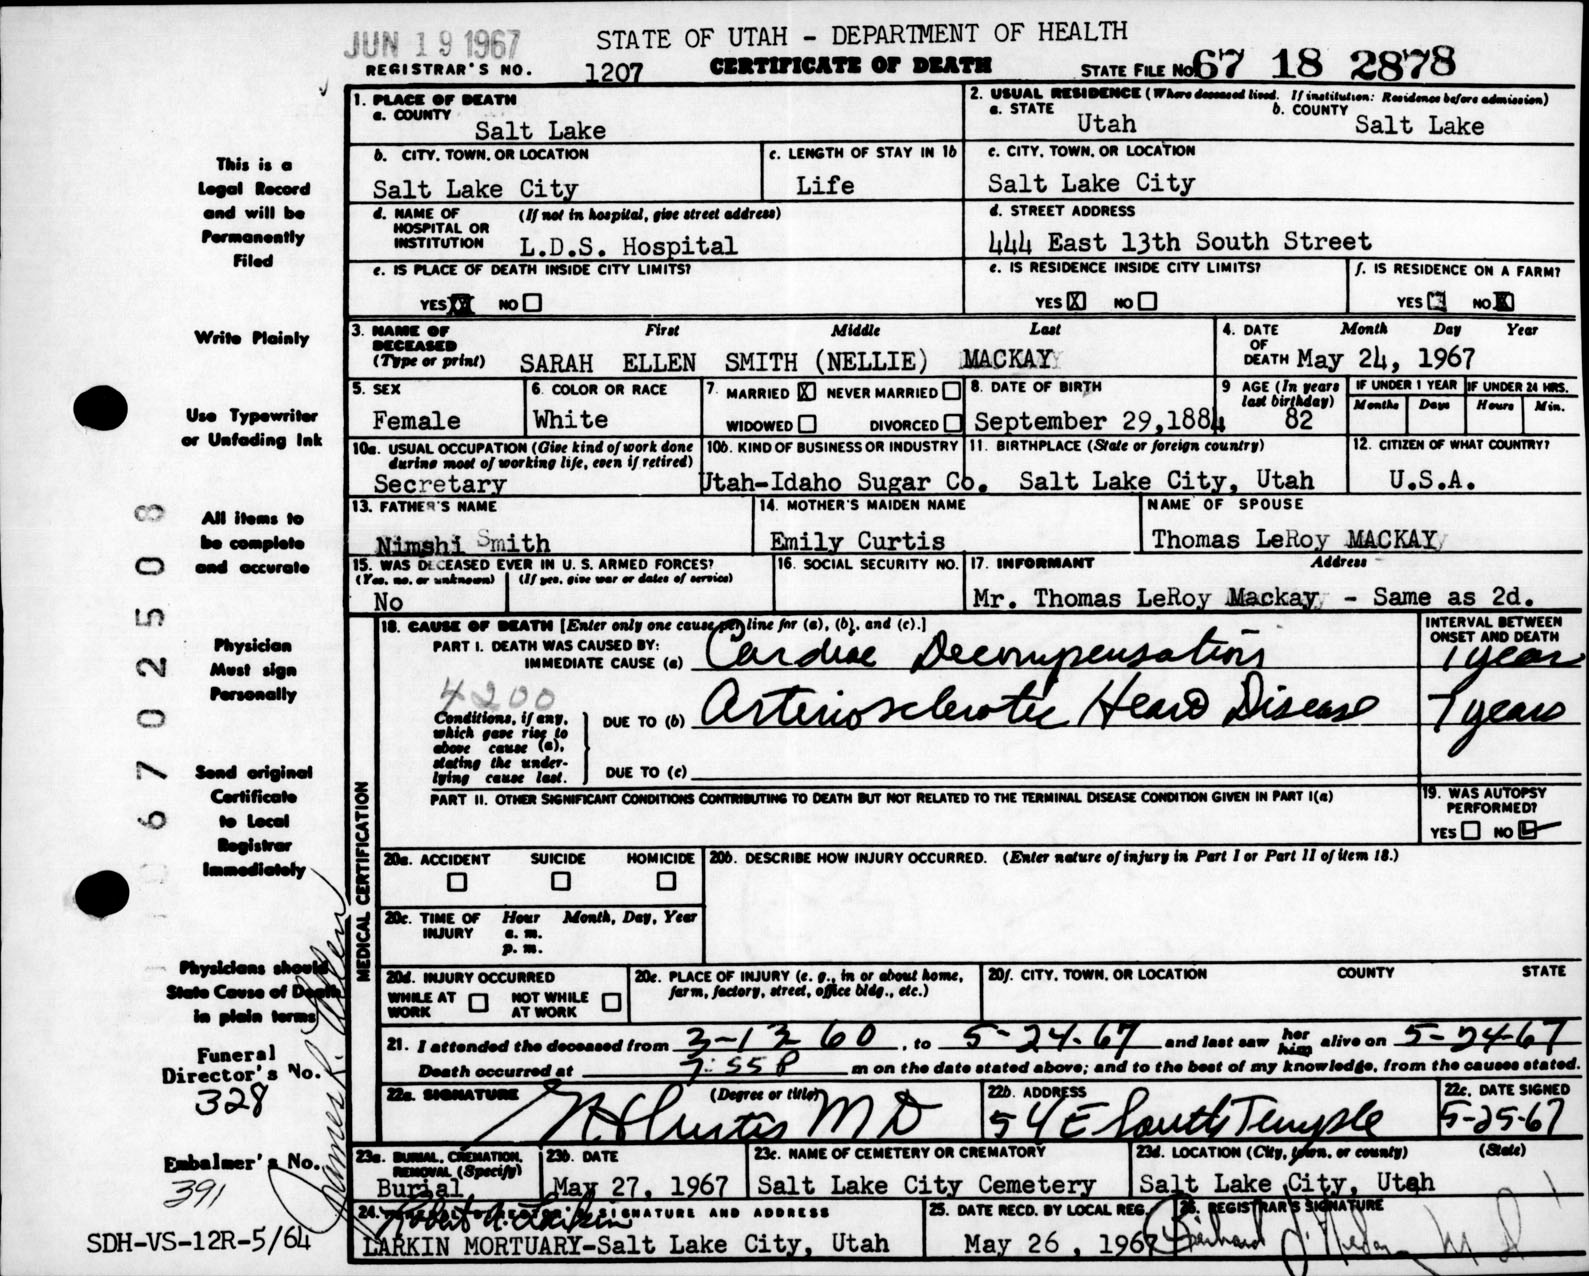 JUN 19 1967
STATE OF UTAH - DEPARTMENT OF HEALTH
REGISTRAR'S NO. 1207 CERTIFICATE OF DEATH STATE FILE NO. 67 18 2878
This is a
Legal Record
and will be
Permanently
Filed
Write Plainly
Use Typewriter
or Unfading Ink
All items to
be complete
and accurate
Physician
Must sign
Personally
Send original
Certificate
to Local
Registrar
Immediately
Physicians should
State Cause of Death
in plain terms
Funeral
Director's No.
328
Embalmer's No.
391
James R. Allen
SDH-VS-12R-5/64
6702508
1. PLACE OF DEATH
a. COUNTY
Salt Lake
2. USUAL RESIDENCE (Where deceased lived. If institution: Residence before admission)
a. STATE b. COUNTY
Utah Salt Lake
b. CITY, TOWN, OR LOCATION
Salt Lake City
c. LENGTH OF STAY IN 1b
Life
c. CITY, TOWN, OR LOCATION
Salt Lake City
d. NAME OF HOSPITAL OR INSTITUTION (If not in hospital, give street address)
L.D.S. Hospital
d. STREET ADDRESS
444 East 13th South Street
e. IS PLACE OF DEATH INSIDE CITY LIMITS?
YES X NO
e. IS RESIDENCE INSIDE CITY LIMITS?
YES X NO
f. IS RESIDENCE ON A FARM?
YES NO X
3. NAME OF DECEASED (Type or print) First Middle Last
SARAH ELLEN SMITH (NELLIE) MACKAY
4. DATE OF DEATH Month Day Year
May 24, 1967
5. SEX
Female
6. COLOR OR RACE
White
7. MARRIED X NEVER MARRIED
WIDOWED DIVORCED
8. DATE OF BIRTH
September 29,1884
9 AGE (In years last birthday)
82
IF UNDER 1 YEAR IF UNDER 24 HRS.
Months Days Hours Min.
10a. USUAL OCCUPATION (Give kind of work done during most of working life, even if retired)
Secretary
10b. KIND OF BUSINESS OR INDUSTRY
Utah-Idaho Sugar Co.
11. BIRTHPLACE (State or foreign country)
Salt Lake City, Utah
12. CITIZEN OF WHAT COUNTRY?
U.S.A.
13. FATHER'S NAME
Nimshi Smith
14. MOTHER'S MAIDEN NAME
Emily Curtis
NAME OF SPOUSE
Thomas LeRoy MACKAY
15. WAS DECEASED EVER IN U. S. ARMED FORCES?
(Yes, no, or unknown) (If yes, give war or dates of service)
No
16. SOCIAL SECURITY NO.
17. INFORMANT Address
Mr. Thomas LeRoy Mackay - Same as 2d.
MEDICAL CERTIFICATION
18. CAUSE OF DEATH [Enter only one cause per line for (a), (b), and (c).]
INTERVAL BETWEEN ONSET AND DEATH
PART I. DEATH WAS CAUSED BY:
IMMEDIATE CAUSE (a) Cardiac Decompensation 1 year
4200
Conditions, if any, which gave rise to above cause (a), stating the underlying cause last.
DUE TO (b) Arteriosclerotic Heart Disease 7 years
DUE TO (c)
PART II. OTHER SIGNIFICANT CONDITIONS CONTRIBUTING TO DEATH BUT NOT RELATED TO THE TERMINAL DISEASE CONDITION GIVEN IN PART I(a)
19. WAS AUTOPSY PERFORMED?
YES NO
20a. ACCIDENT SUICIDE HOMICIDE
20b. DESCRIBE HOW INJURY OCCURRED. (Enter nature of injury in Part I or Part II of item 18.)
20c. TIME OF INJURY Hour Month, Day, Year
a. m.
p. m.
20d. INJURY OCCURRED
WHILE AT WORK NOT WHILE AT WORK
20e. PLACE OF INJURY (e. g., in or about home, farm, factory, street, office bldg., etc.)
20f. CITY, TOWN, OR LOCATION COUNTY STATE
21. I attended the deceased from 3-13 60, to 5-24-67 and last saw her him alive on 5-24-67
Death occurred at 7:55P m on the date stated above; and to the best of my knowledge, from the causes stated.
22a. SIGNATURE (Degree or title)
Curtis MD
22b. ADDRESS
54 E South Temple
22c. DATE SIGNED
5-25-67
23a. BURIAL, CREMATION, REMOVAL (Specify)
Burial
23b. DATE
May 27, 1967
23c. NAME OF CEMETERY OR CREMATORY
Salt Lake City Cemetery
23d. LOCATION (City, town, or county) (State)
Salt Lake City, Utah
24. SIGNATURE AND ADDRESS
Robert A. Larkin
LARKIN MORTUARY-Salt Lake City, Utah
25. DATE RECD. BY LOCAL REG.
May 26, 1967
26. REGISTRAR'S SIGNATURE